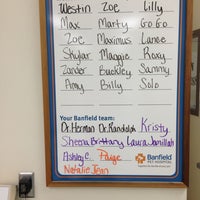 Westin Zoe Lilly
Max Marty GoGo
Zoe Maximus Lanee
Skylar Maggie Roxy
Zander Buckley Sammy
Amy Billy Solo
Your Banfield team:
Dr. Herman Dr. Randolph Kristy
Sheena Brittany Laura Jamillah
Ashley C. Paige
Natalie Jean
Banfield
PET HOSPITAL